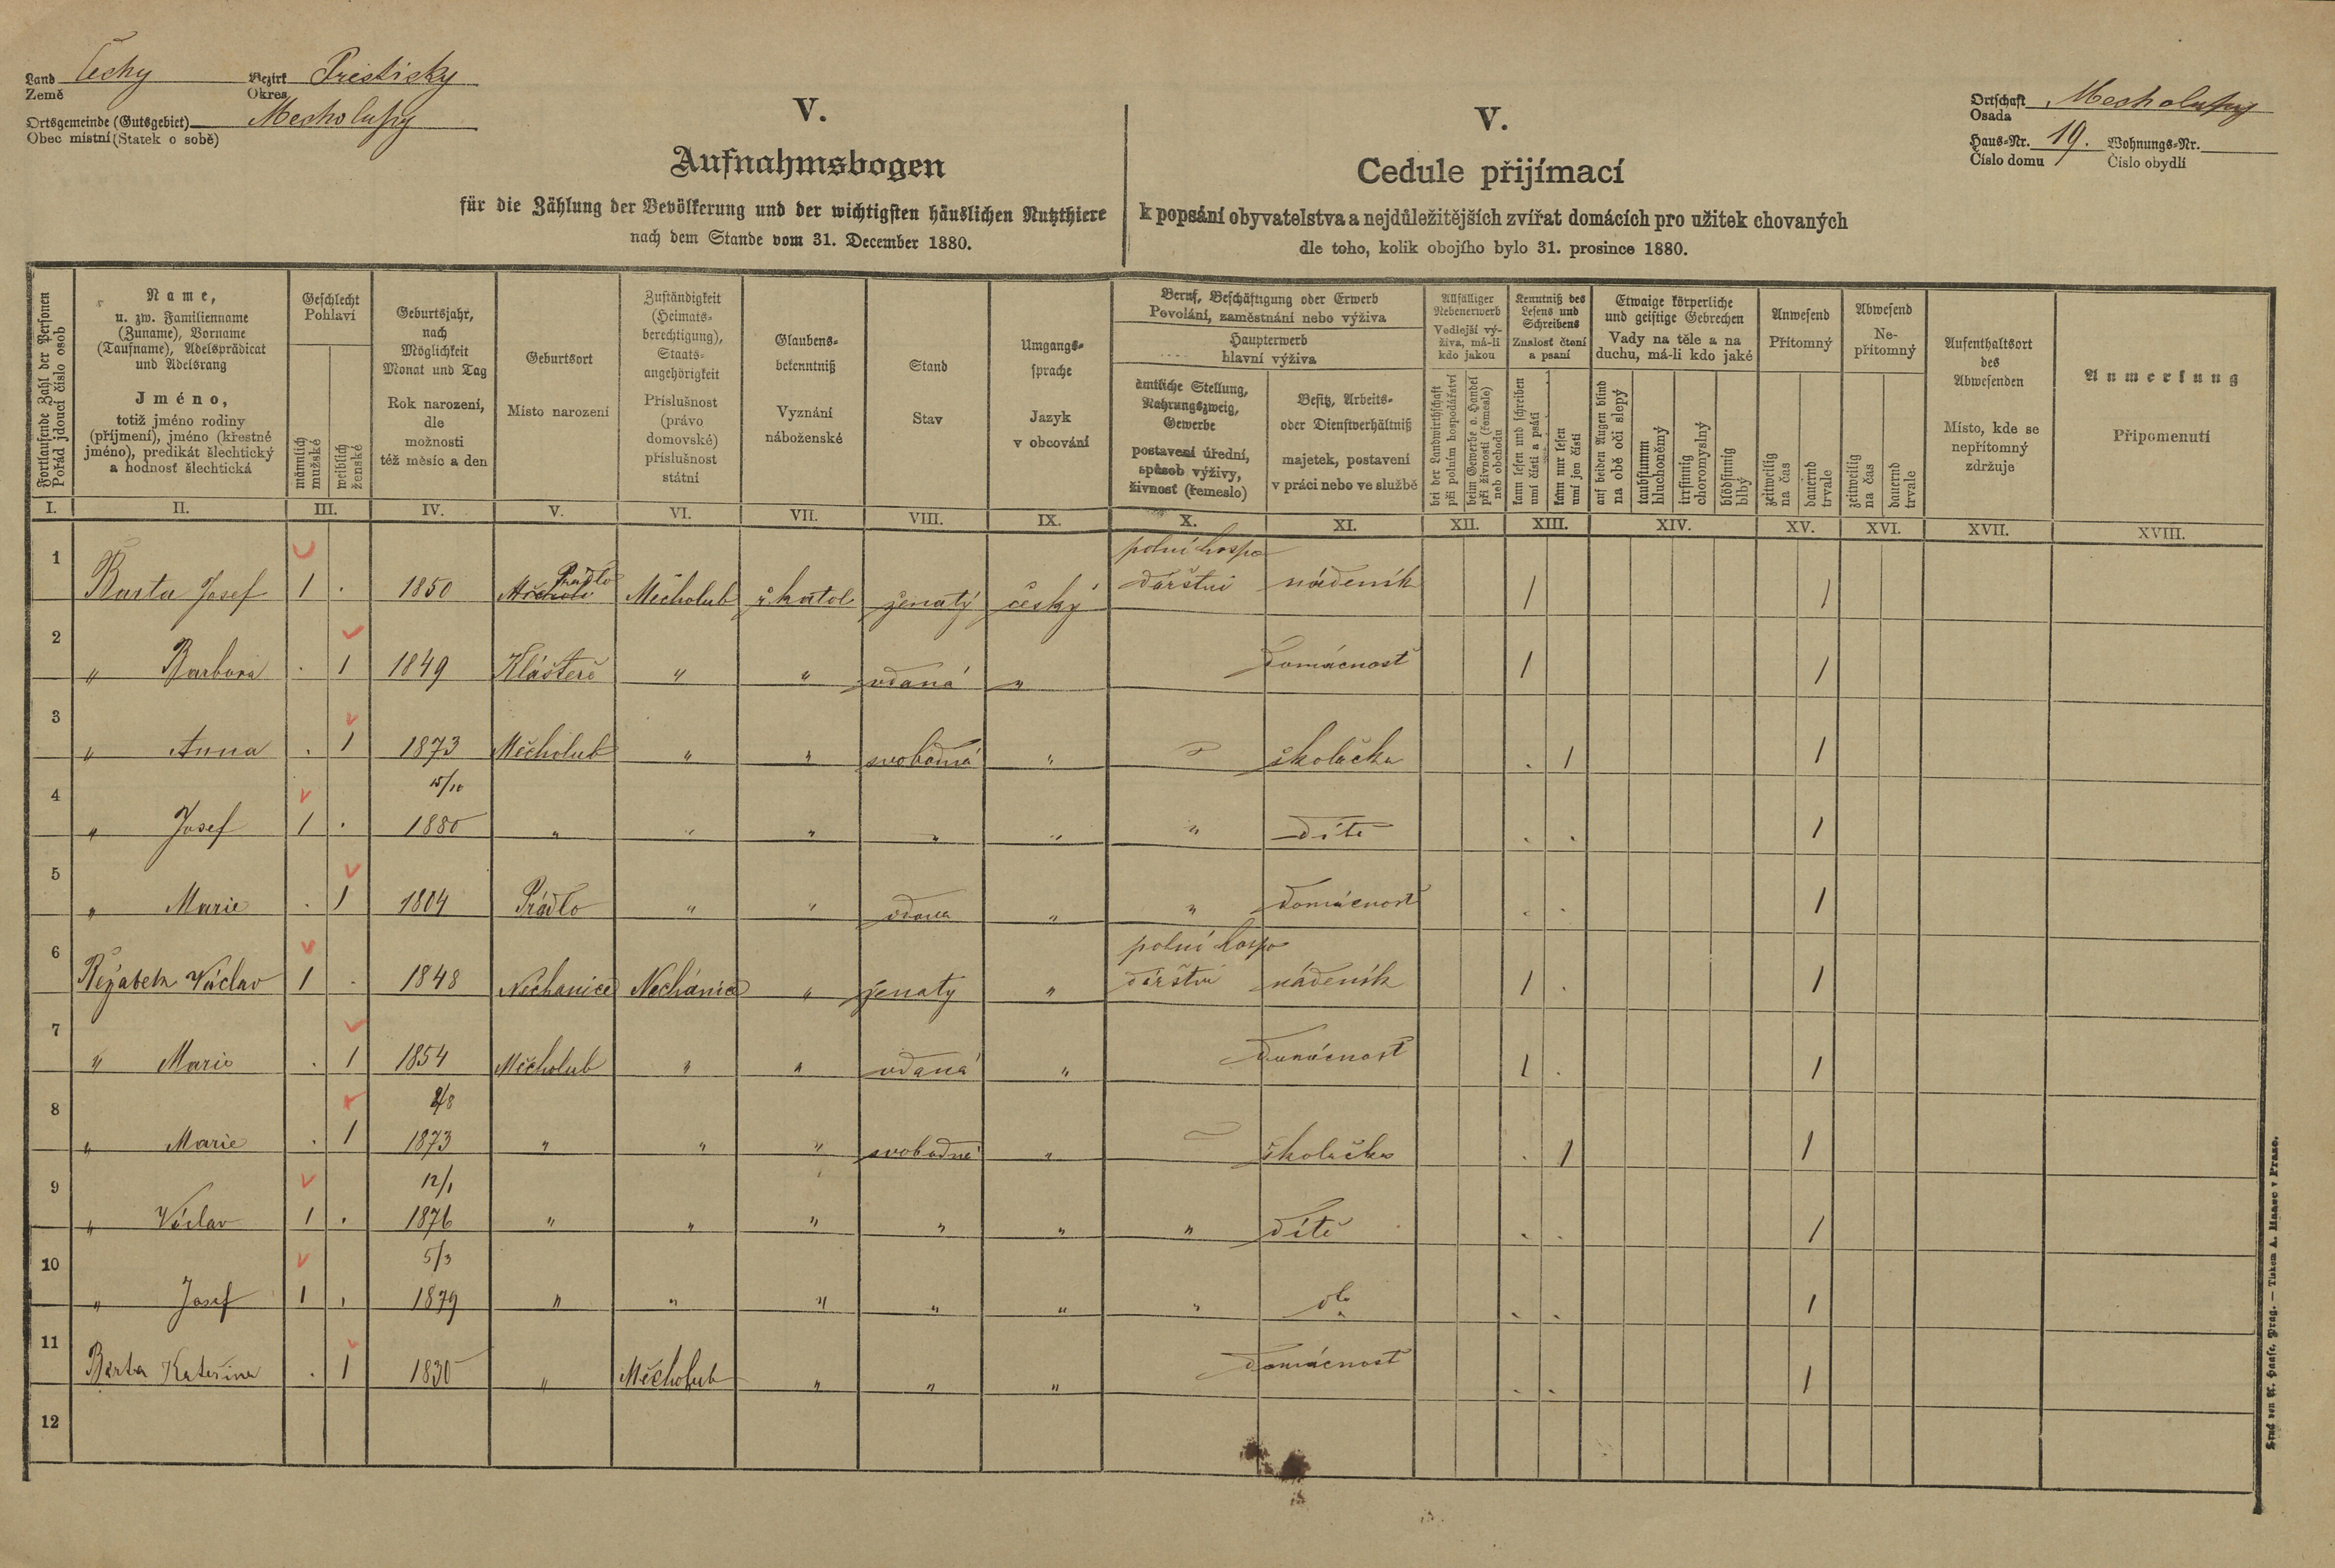 Land Země Čechy Bezirk Okres Přestický
Ortsgemeinde (Gutsgebiet) Obec místní (Statek o sobě) Mecholupy
Ortschaft Osada Mecholupy
Haus-Nr. Číslo domu 19. Wohnungs-Nr. Číslo obydlí
V.
Aufnahmsbogen
für die Zählung der Bevölkerung und der wichtigsten häuslichen Nutzthiere
nach dem Stande vom 31. December 1880.
V.
Cedule přijímací
k popsání obyvatelstva a nejdůležitějších zvířat domácích pro užitek chovaných
dle toho, kolik obojího bylo 31. prosince 1880.
Fortlaufende Zahl der Personen
Pořád jdoucí číslo osob
Name,
u. zw. Familienname
(Zuname), Vorname
(Taufname), Adelsprädicat
und Adelsrang
Jméno,
totiž jméno rodiny
(příjmení), jméno (křestné
jméno), predikát šlechtický
a hodnosť šlechtická
Geschlecht
Pohlaví
männlich
mužské
weiblich
ženské
Geburtsjahr,
nach
Möglichkeit
Monat und Tag
Rok narození,
dle
možnosti
též měsíc a den
Geburtsort
Místo narození
Zuständigkeit
(Heimats-
berechtigung),
Staats-
angehörigkeit
Příslušnost
(právo
domovské)
příslušnost
státní
Glaubens-
bekenntniß
Vyznání
náboženské
Stand
Stav
Umgangs-
sprache
Jazyk
v obcování
Beruf, Beschäftigung oder Erwerb
Povolání, zaměstnání nebo výživa
Haupterwerb
hlavní výživa
ämtliche Stellung,
Nahrungszweig,
Gewerbe
postavení úřední,
spůsob výživy,
živnosť (řemeslo)
Besitz, Arbeits-
oder Dienstverhältniß
majetek, postavení
v práci nebo ve službě
Allfälliger
Nebenerwerb
Vedlejší vý-
živa, má-li
kdo jakou
bei der Landwirthschaft
při polním hospodářství
beim Gewerbe o. Handel
při živnosti (řemesle)
neb obchodu
Kenntniß des
Lesens und
Schreibens
Znalosť čtení
a psaní
kann lesen und schreiben
umí čísti a psáti
kann nur lesen
umí jen čísti
Etwaige körperliche
und geistige Gebrechen
Vady na těle a na
duchu, má-li kdo jaké
auf beiden Augen blind
na obě oči slepý
taubstumm
hluchoněmý
irrsinnig
choromyslný
blödsinnig
blbý
Anwesend
Přítomný
zeitweilig
na čas
dauernd
trvale
Abwesend
Ne-
přítomný
zeitweilig
na čas
dauernd
trvale
Aufenthaltsort
des
Abwesenden
Místo, kde se
nepřítomný
zdržuje
Anmerkung
Připomenutí
I. II. III. IV. V. VI. VII. VIII. IX. X. XI. XII. XIII. XIV. XV. XVI. XVII. XVIII.
polní hospo
1 Barta Josef 1 . 1850 Prádlo Měcholub ř. katol. ženatý český dářství nádeník 1 1
2 " Barbora . 1 1849 Klášteř " " vdaná " domácnosť 1 1
3 " Anna . 1 1873 Měcholub " " svobodná " školačka . 1 1
15/10
4 " Josef 1 . 1880 " " " " " " dítě . . 1
5 " Marie . 1 1804 Prádlo " " vdova " " domácnosť . . 1
polní hospo
6 Řeřabek Václav 1 . 1848 Nechanice Nechánice " ženaty " dářství nádeník 1 . 1
7 " Marie . 1 1854 Měcholub " " vdaná " domácnosť 1 . 1
8 " Marie . 1 1873 " " " svobodná " školačka . 1 1
12/1
9 " Václav 1 . 1876 " " " " " " dítě . . 1
5/3
10 " Josef 1 . 1879 " " " " " " . . 1
11 Barta Kateřina . 1 1830 " Měcholub " " " domácnosť . . 1
12
Druck von A. Haase, Prag. — Tiskem A. Haase v Praze.